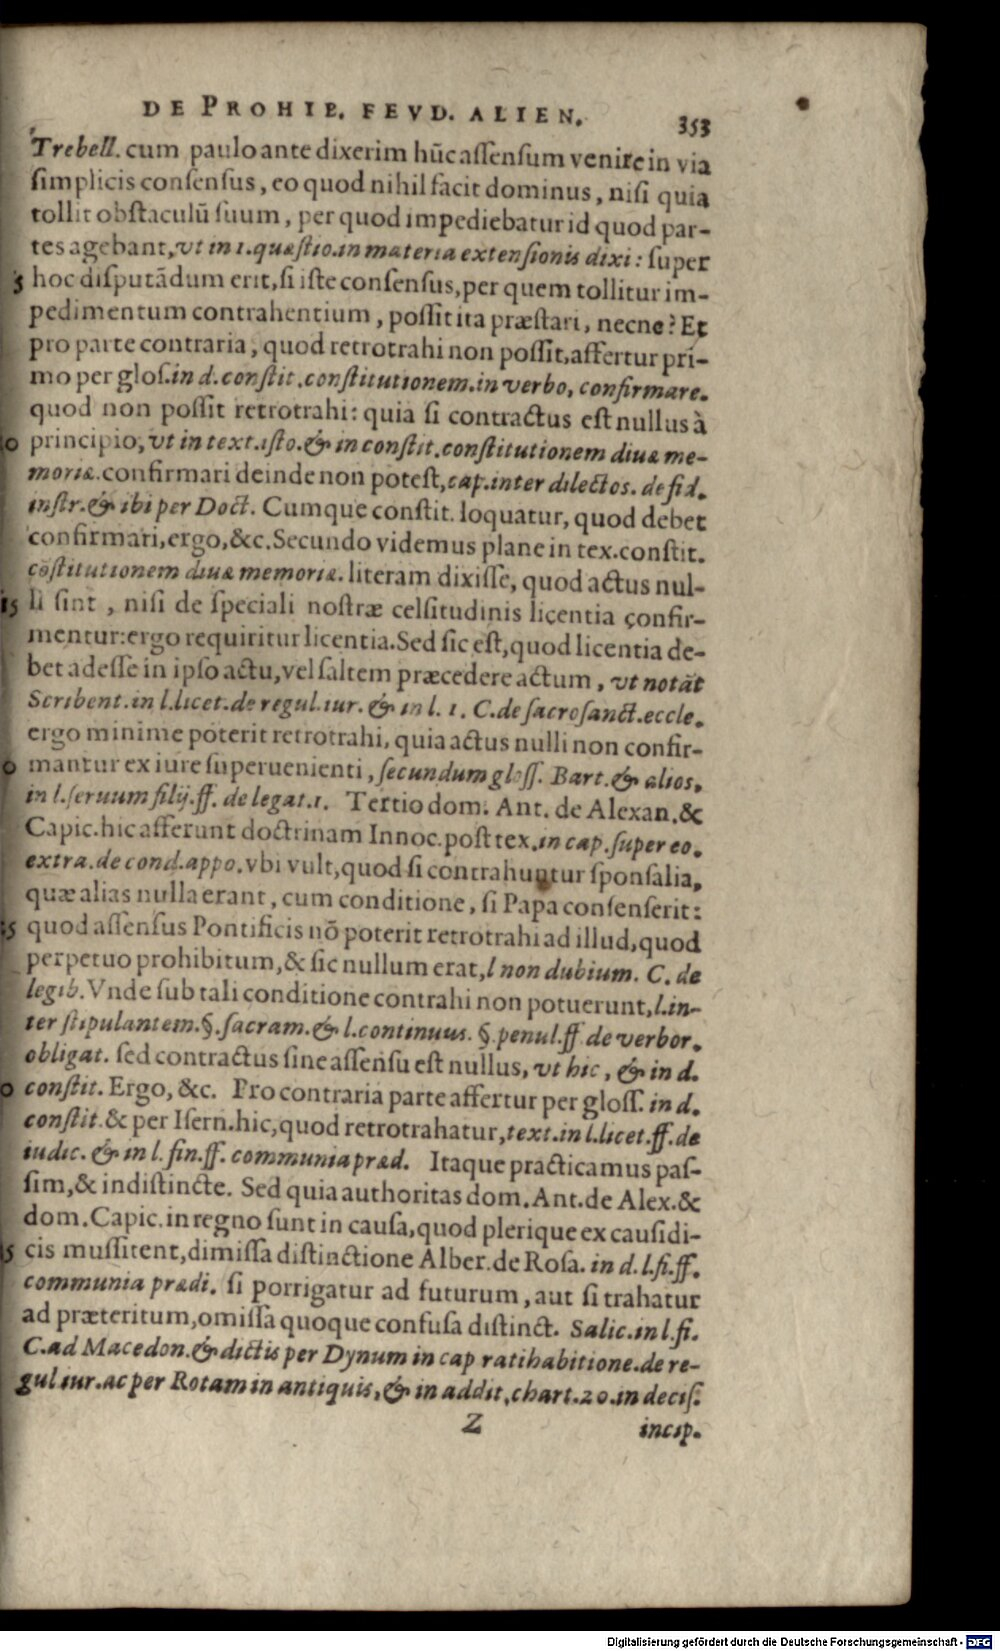 DE PROHIB. FEVD. ALIEN.
353
Trebell. cum paulo ante dixerim hũc assensum venire in via
simplicis consensus, eo quod nihil facit dominus, nisi quia
tollit obstaculũ suum, per quod impediebatur id quod par-
tes agebant, vt in 1. quæstio. in materia extensionis dixi: super
5 hoc disputãdum erit, si iste consensus, per quem tollitur im-
pedimentum contrahentium, possit ita præstari, necne? Et
pro parte contraria, quod retrotrahi non possit, affertur pri-
mo per glos. in d. constit. constitutionem. in verbo, confirmare.
quod non possit retrotrahi: quia si contractus est nullus à
0 principio, vt in text. isto. & in constit. constitutionem diuæ me-
moriæ. confirmari deinde non potest, cap. inter dilectos. de fid.
instr. & ibi per Doct. Cumque constit. loquatur, quod debet
confirmari, ergo, &c. Secundo videmus plane in tex. constit.
cõstitutionem diuæ memoriæ. literam dixisse, quod actus nul-
15 li sint, nisi de speciali nostræ celsitudinis licentia confir-
mentur: ergo requiritur licentia. Sed sic est, quod licentia de-
bet adesse in ipso actu, vel saltem præcedere actum, vt notãt
Scribent. in l. licet. de regul. iur. & in l. 1. C. de sacrosanct. eccle.
ergo minime poterit retrotrahi, quia actus nulli non confir-
0 mantur ex iure superuenienti, secundum gloss. Bart. & alios,
in l. seruum filij. ff. de legat. 1. Tertio dom. Ant. de Alexan. &
Capic. hic afferunt doctrinam Innoc. post tex. in cap. super eo.
extra. de cond. appo. vbi vult, quod si contrahuntur sponsalia,
quæ alias nulla erant, cum conditione, si Papa consenserit:
5 quod assensus Pontificis nõ poterit retrotrahi ad illud, quod
perpetuo prohibitum, & sic nullum erat, l non dubium. C. de
legib. Vnde sub tali conditione contrahi non potuerunt, l. in-
ter stipulantem. §. sacram. & l. continuus. §. penul. ff. de verbor.
obligat. sed contractus sine assensu est nullus, vt hic, & in d.
0 constit. Ergo, &c. Pro contraria parte affertur per gloss. in d.
constit. & per Isern. hic, quod retrotrahatur, text. in l. licet. ff. de
iudic. & in l. fin. ff. communia præd. Itaque practicamus pas-
sim, & indistincte. Sed quia authoritas dom. Ant. de Alex. &
dom. Capic. in regno sunt in causa, quod plerique ex causidi-
5 cis mussitent, dimissa distinctione Alber. de Rosa. in d. l. fi. ff.
communia prædi. si porrigatur ad futurum, aut si trahatur
ad præteritum, omissa quoque confusa distinct. Salic. in l. fi.
C. ad Macedon. & dictis per Dynum in cap ratihabitione. de re-
gul iur. ac per Rotam in antiquis, & in addit. chart. 20. in decis.
Z
incip.
Digitalisierung gefördert durch die Deutsche Forschungsgemeinschaft - DFG